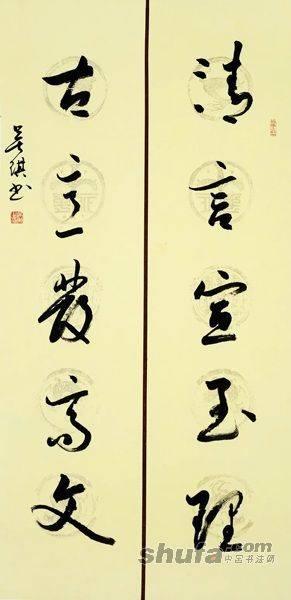 清言宣至理
古意發高文
吴琪书
shufa.com
中国书法网